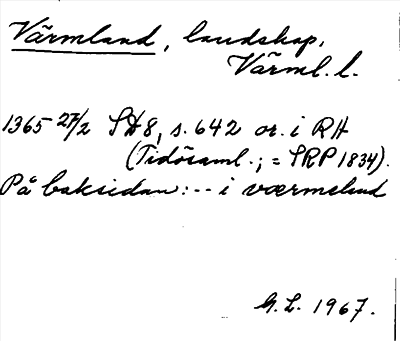 Värmland, landskap.
Värml. l.
1365 27/2 SD 8, s. 642 or. i RH
(Tidösaml.; = SRP 1834).
På baksidan: -- i værmeland
G. L. 1967.